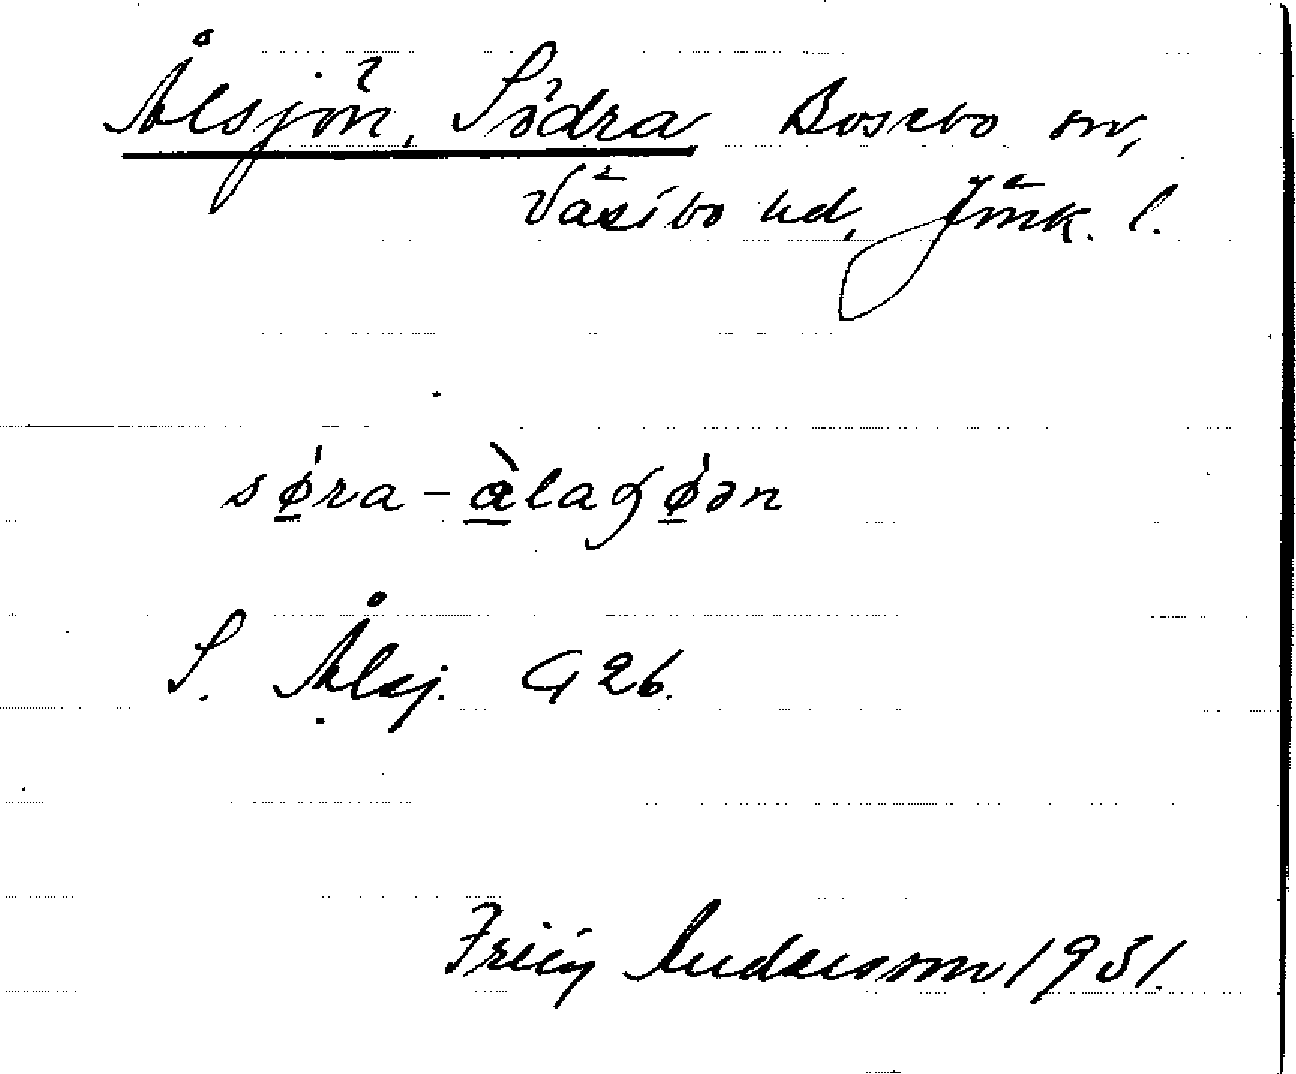 Ålsjön, Södra Bosebo sn,
Västbo hd, Jönk. l.
sǿ̠ra-å̠̀laɧǿ̠ən
S. Ålsj. G 26.
Andersson 1931.